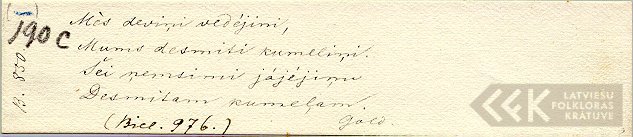 190 C
Mēs deviņi vedējiņi,
Mums desmiti kumeliņi.
Šei ņemsimi jājējiņu
Desmitam kumeļam.
(Biel. 976.) Gold
LATVIEŠU
FOLKLORAS
KRĀTUVE